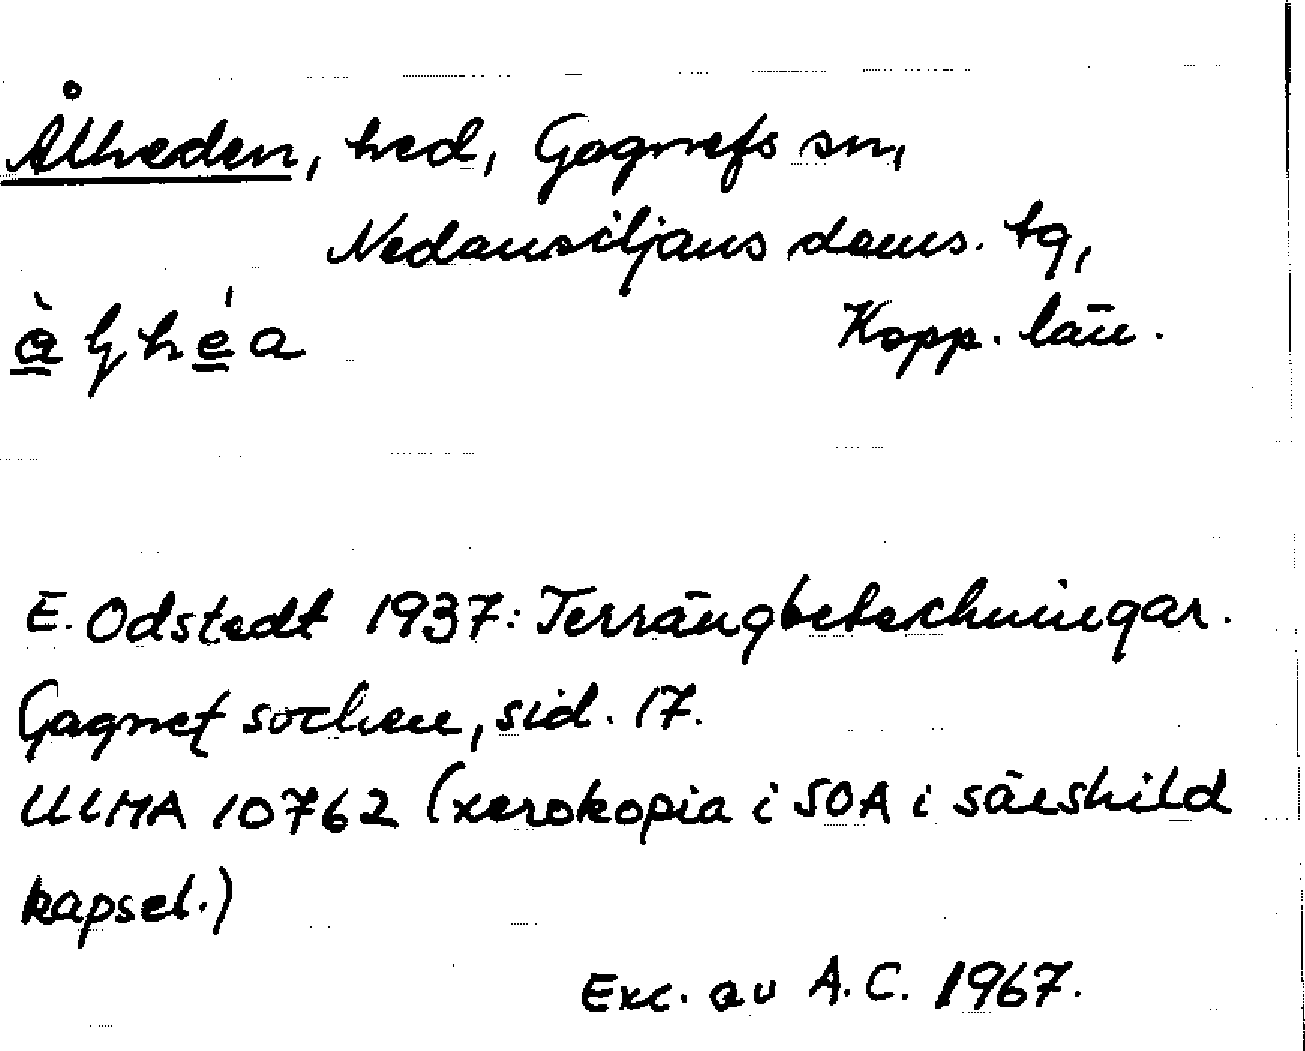 Ålheden, hed, Gagnefs sn,
Nedansiljans doms. tg,
Kopp. län.
E. Odstedt 1937: Terrängbeteckningar.
Gagnef socken, sid. 17.
ULMA 10762 (xerokopia i SOA i särskild
kapsel.)
Exc. av A.C. 1967.